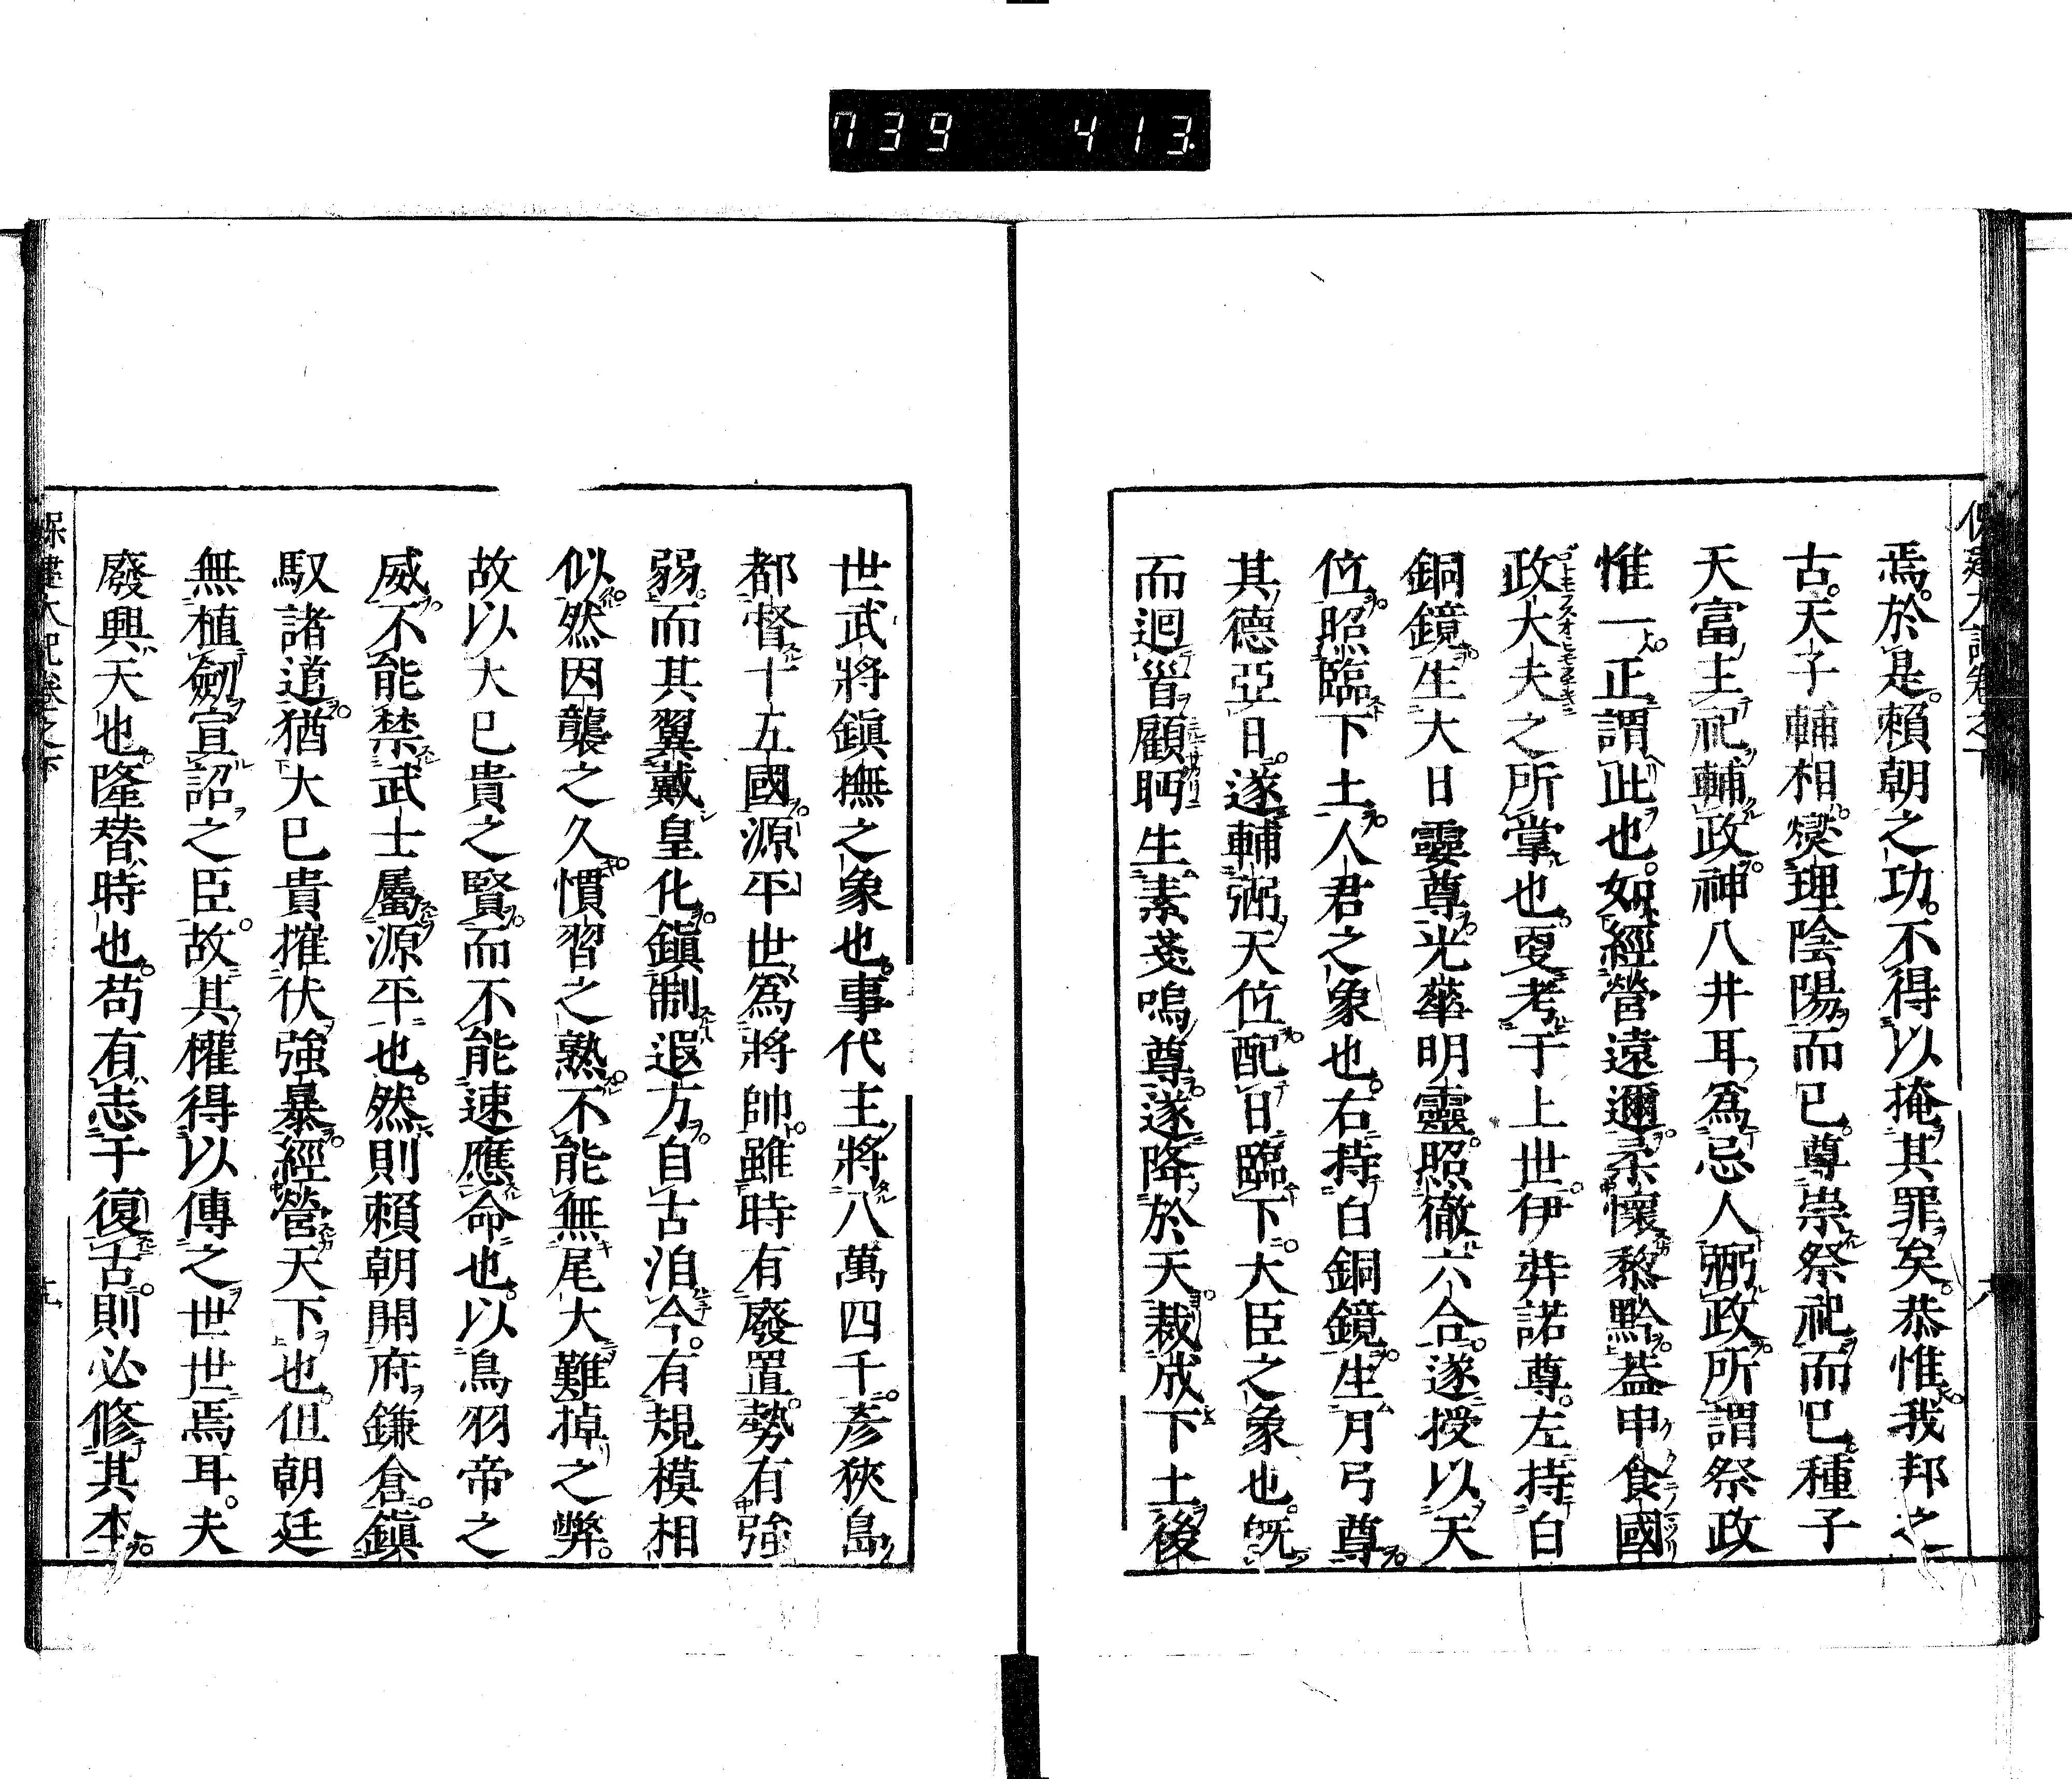 739 413
焉。於是。賴朝之功。不得以掩其罪矣。恭惟我邦之
古。天子輔相。燮理陰陽而已。尊崇祭祀而已。種子
天富主祀輔政。神八井耳為忌人弼政。所謂祭政
惟一。正謂此也。如經營遠邇柔懷黎黔。葢申食國
政大夫之所掌也。更考于上世。伊弉諾尊。左持白
銅鏡。生大日孁尊。光華明靈。照徹六合。遂授以天
位。照臨下土。人君之象也。右持白銅鏡。生月弓尊。
其德亞日。遂輔弼天位。配日臨下。大臣之象也。既
而迴首顧眄。生素戔嗚尊。遂降於天。裁成下土。後
世武將鎮撫之象也。事代主將八萬四千。彥狹島
都督十五國。源平世為將帥。雖時有廢置。勢有強
弱。而其翼戴皇化。鎮制遐方。自古洎今。有規模相
似。然因襲之久。慣習之熟。不能無尾大難掉之弊。
故以大已貴之賢。而不能速應命也。以鳥羽帝之
威。不能禁武士屬源平也。然則賴朝開府鎌倉。鎮
馭諸道。猶大已貴摧伏強暴。經營天下也。但朝廷
無植劒宣詔之臣。故其權得以傳之世世焉耳。夫
廢興天也。隆替時也。苟有志于復古。則必修其本。
保建大記卷之下